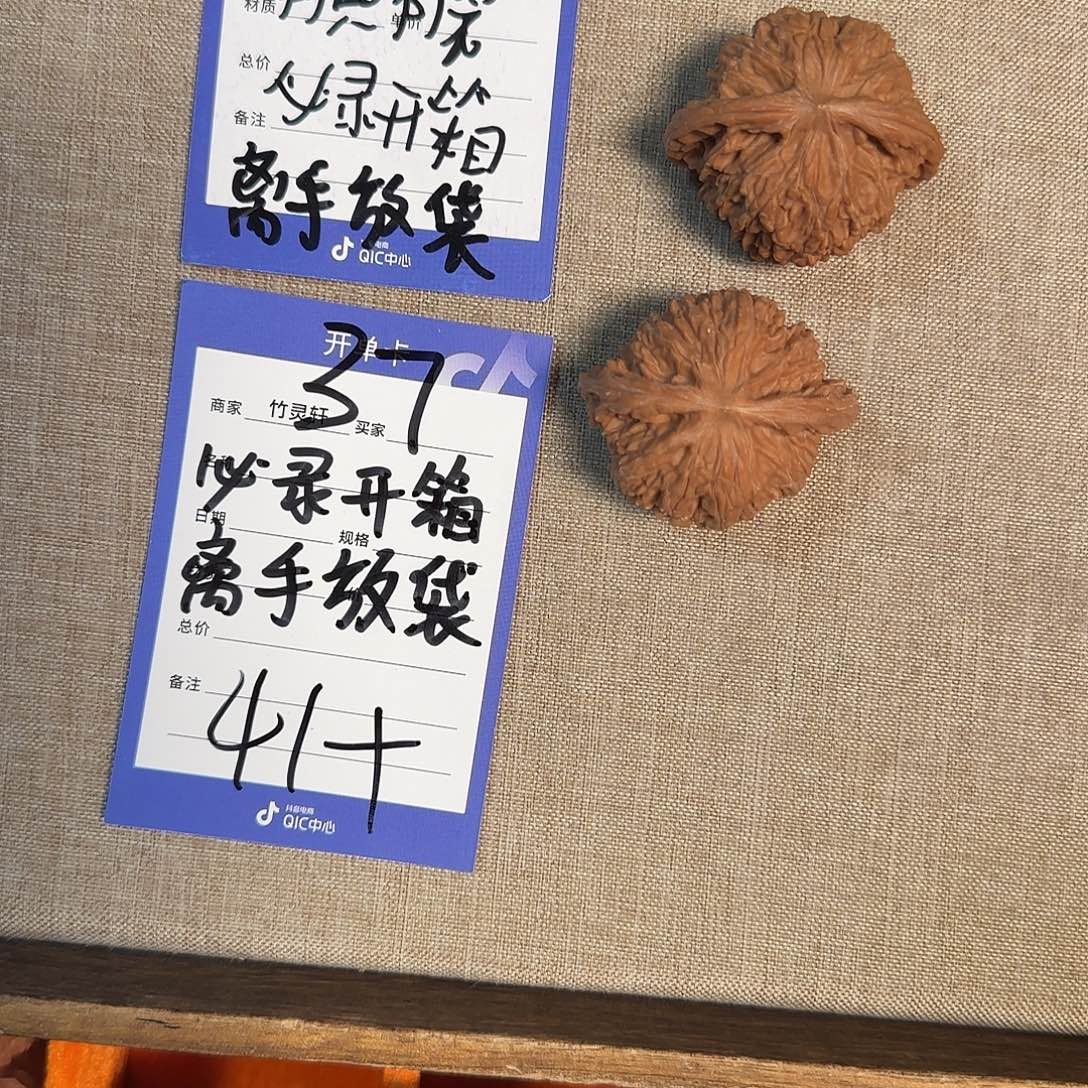 材质 单价
总价
必录开箱
备注
离手放袋
抖音电商
QIC中心
开单卡
37
商家 竹灵轩 买家
必录开箱
日期 规格
离手放袋
总价
备注
41+
抖音电商
QIC中心